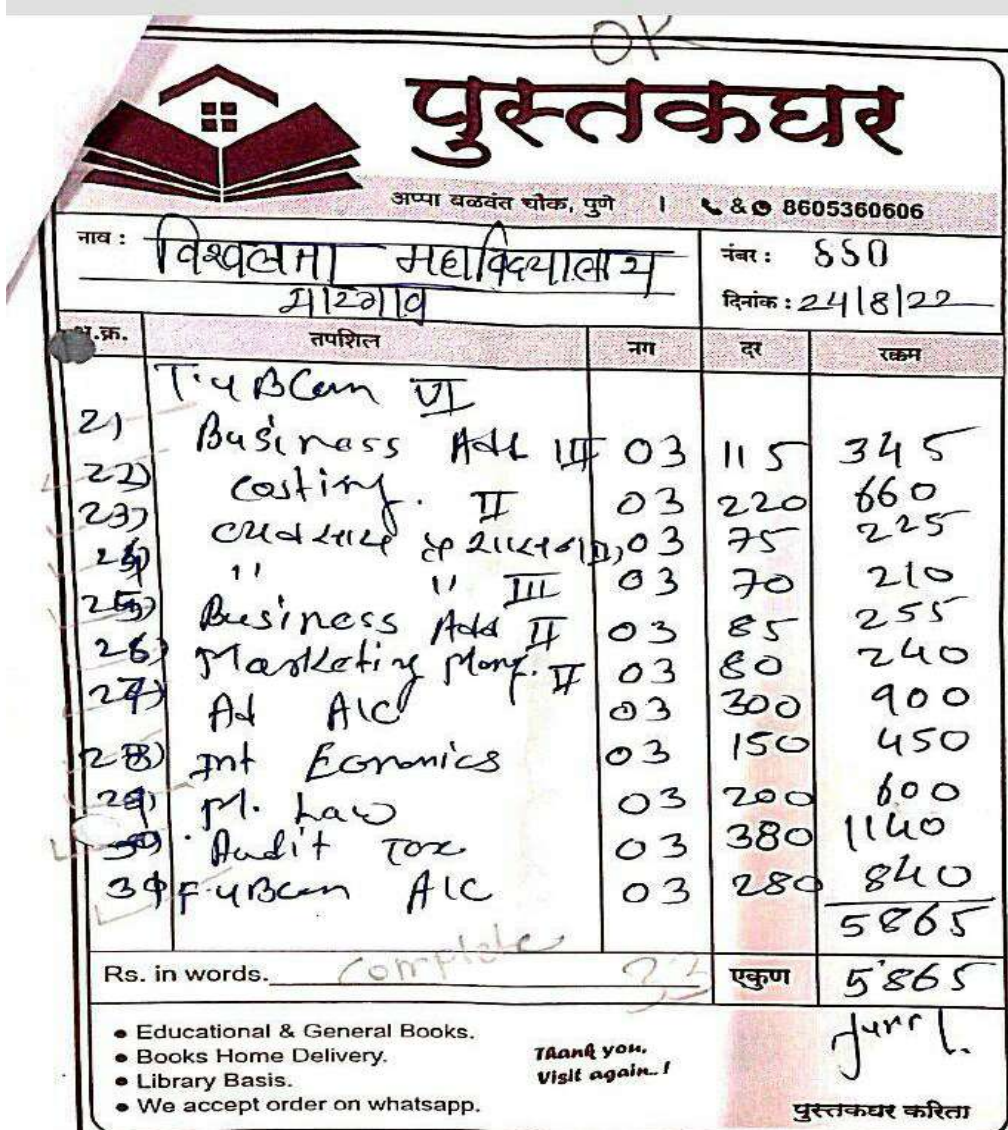 OK
पुस्तकघर
अप्पा बळवंत चौक, पुणे | & 8605360606
नाव : विश्वलता महाविद्यालय नंबर : 550
दिनांक : 24/8/22
अ.क्र. तपशिल नग दर रक्कम
T.Y BCom VI
21) Business Add III 03 115 345
22) Costing. II 03 220 660
23) व्यवसाय प्रशासन II) 03 75 225
24) " " III 03 70 210
25) Business Add II 03 85 255
26) Marketing Mang. II 03 80 240
27) Ad A/C 03 300 900
28) Int Economics 03 150 450
29) M. Law 03 200 600
30) Audit Tax 03 380 1140
31 F.Y BCom A/C 03 280 840
5865
Rs. in words. Complete 33 एकुण 5865
• Educational & General Books.
• Books Home Delivery.
• Library Basis.
• We accept order on whatsapp.
Thank you,
Visit again..!
पुस्तकघर करिता